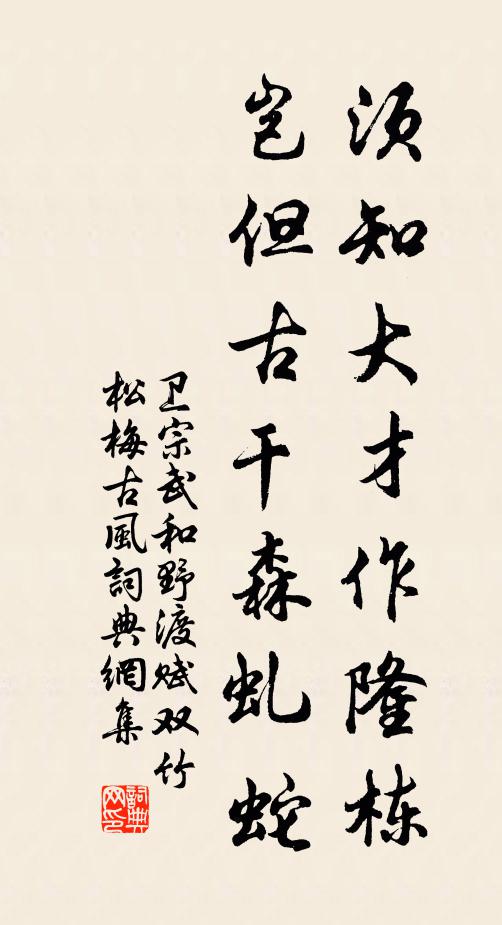 须知大才作隆栋
岂但古干森虬蛇
卫宗武和野渡赋双竹
松梅古風詞典網集
詞典网印